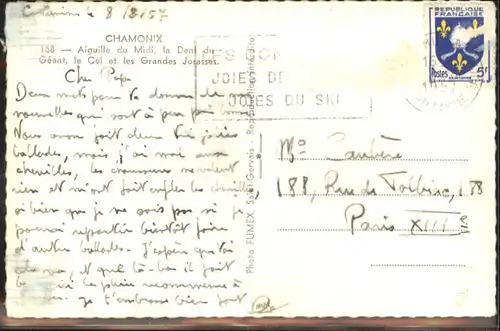 le 8/3/57
CHAMONIX
158 — Aiguille du Midi, la Dent du
Géant, le Col et les Grandes Jorasses.
Cher Papa
Deux mots pour te donner de nos
nouvelles qui sont à peu près bonnes
Nous avons fait deux très jolies
ballades, mais j'ai mal aux
chevilles, les chaussures ne valent
rien et m'ont fait enfler les chevilles
si bien que je ne sais pas si je
pourrai repartir bientôt faire
d'autres ballades. J'espère que toi
va, et que là-bas il fait
la pluie recommence à
Je t'embrasse bien fort
Photo FUMEX, Saint-Gervais - Reproduction interdite
JOIES DE
JOIES DU SKI
REPUBLIQUE
FRANÇAISE
Postes 5f
Me Caubère
188, Rue de Tolbiac, 188
Paris XIIIe